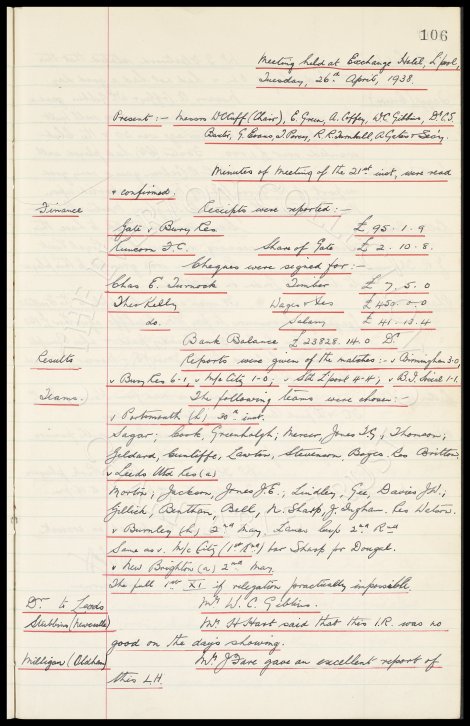 106
Meeting held at Exchange Hotel, L'pool,
Tuesday, 26th April, 1938.
Present :- Messrs W. Cuff (Chair), E. Green, A. Coffey, W.C. Gibbins, Dr C.S.
Baxter, G. Evans, J. Percy, R.R. Turnbull, A. Gates & Secy.
Minutes of meeting of the 21st inst, were read
& confirmed.
Finance Receipts were reported :-
Gate v Bury Res £ 95. 1. 9
Runcorn F.C. Share of Gate £ 2. 10. 8.
Cheques were signed for :-
Chas E. Turnock Timber £ 7. 5. 0
Theo Kelly Wages & Fees £ 450. 0. 0
do. Salary £ 41. 13. 4
Bank Balance £ 23828. 14. 0 Dr
Results Reports were given of the matches :- v Birmingham 3-0,
v Bury Res 6-1, v M/c City 1-0; v Sth L'pool 4-4; v B.I. Social 1-1.
Teams. The following teams were chosen :-
v Portsmouth (h) 30th inst.
Sagar; Cook, Greenhalgh; Mercer, Jones T.G; Thomson;
Geldard, Cunliffe, Lawton, Stevenson, Boyes. Res Britton.
v Leeds Utd Res (a)
Morton; Jackson, Jones J.E.; Lindley, Gee, Davies J.W.;
Gillick, Bentham, Bell, N. Sharp, J. Ingham. Res Watson.
v Burnley (h) 2nd May, Lancs Cup 2nd Rnd
Same as v. M/c City (1st Rnd) bar Sharp for Dougal.
v New Brighton (a) 2nd May.
The full 1st XI if relegation practically impossible.
Dr. to Leeds Mr W. C. Gibbins.
Stubbins (Newcastle) Mr H Hart said that this I.R. was no
good on the day's showing.
Milligan (Oldham) Mr J Fare gave an excellent report of
this L.H.